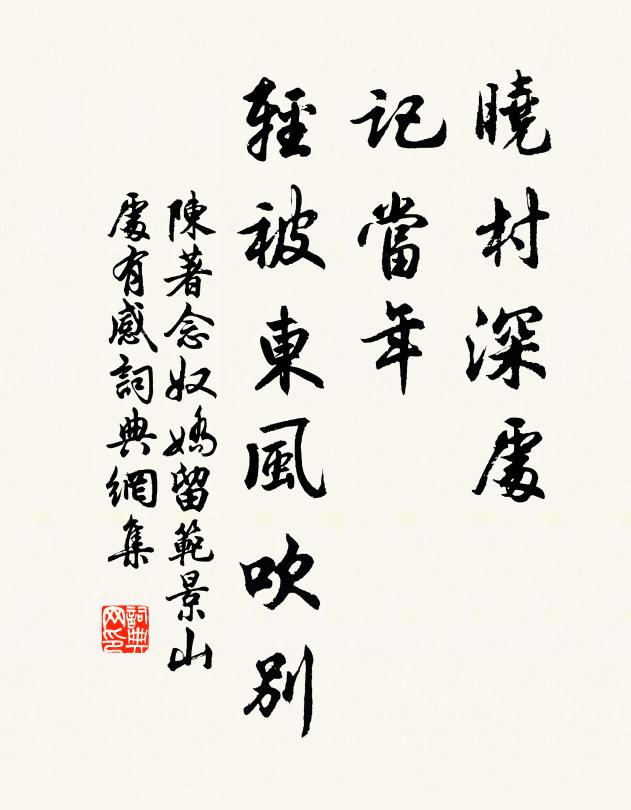 曉村深處
記當年
輕被東風吹別
陳著念奴嬌留範景山
處有感詞典網集
詞典網印